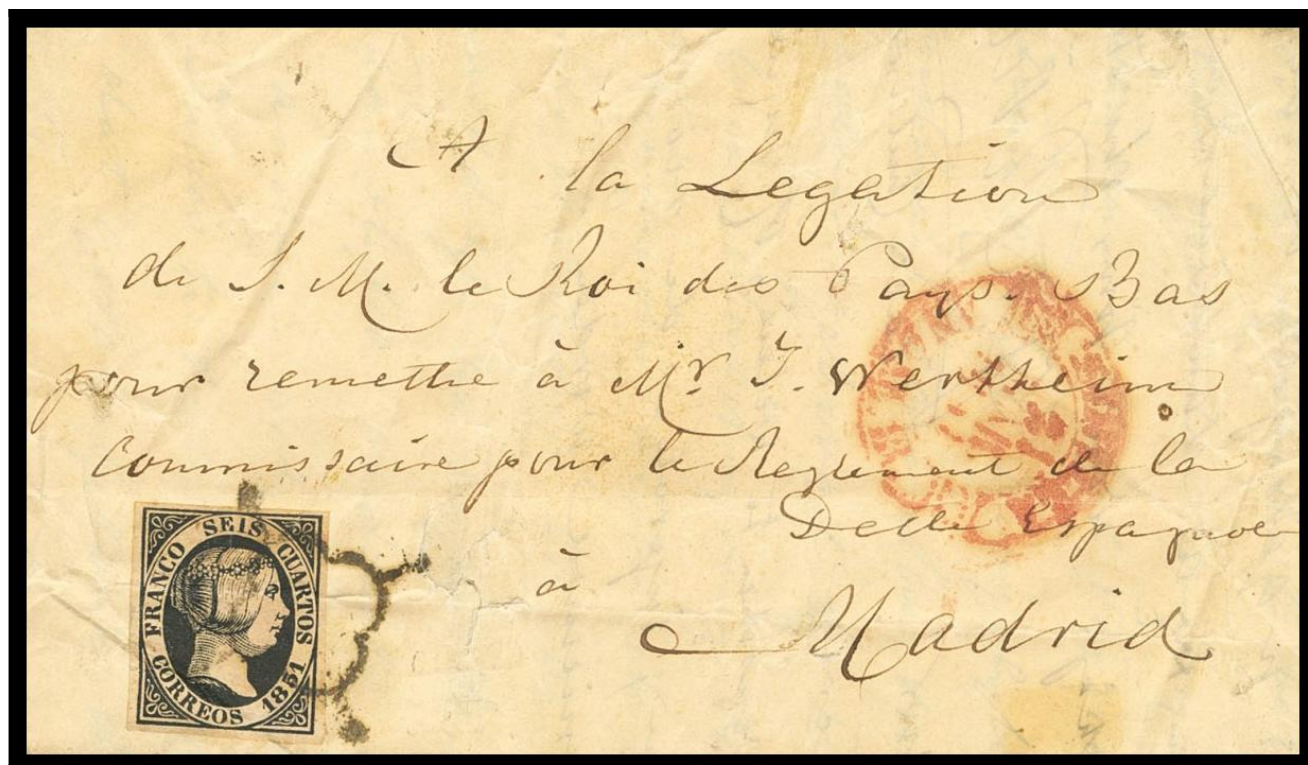 A la Legation
de S. M. le Roi des Pays-Bas
pour remettre à Mr J. Wertheim
Commissaire pour le Reglement de la
Dette Espagnole
à
Madrid
FRANCO SEIS CUARTOS
CORREOS 1851